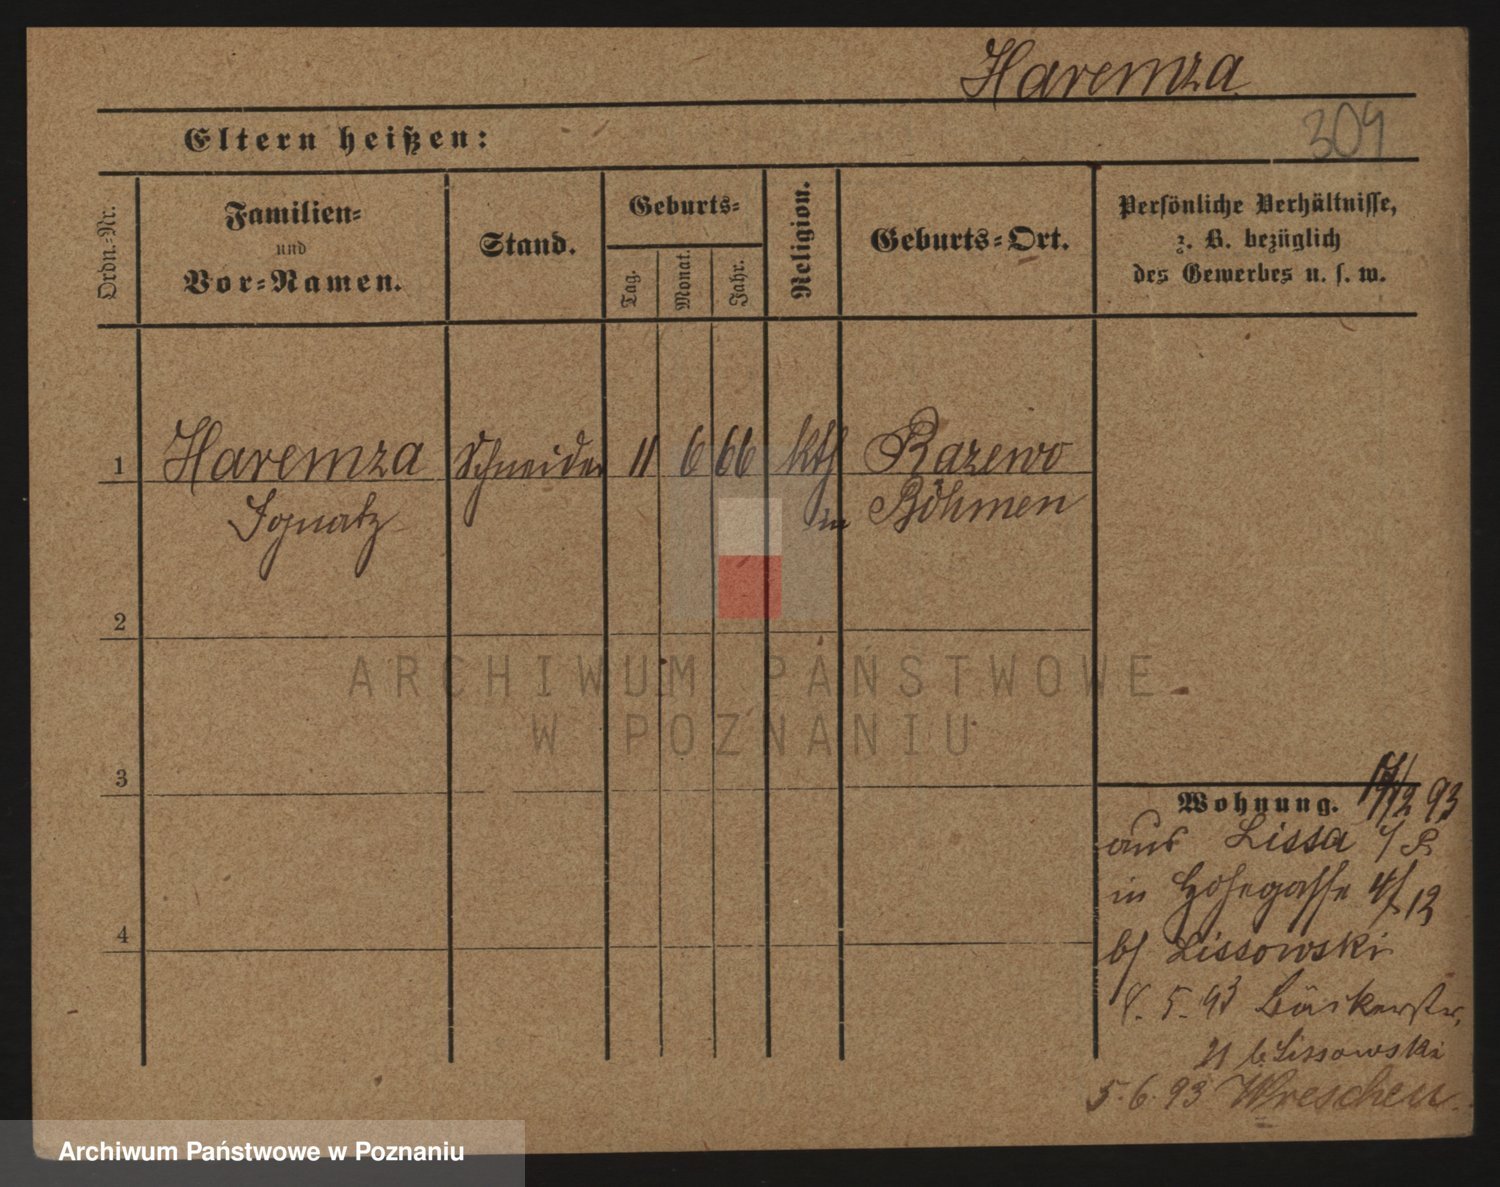 Haremza
309
Eltern heißen:
Ordn.-Nr.
Familien-
und
Vor-Namen.
Stand.
Geburts-
Tag.
Monat.
Jahr.
Religion.
Geburts-Ort.
Persönliche Verhältnisse,
z. B. bezüglich
des Gewerbes u. s. w.
1 Haremza Schneider 11 6 66 kth Razewo
Ignatz in Böhmen
2
ARCHIWUM PAŃSTWOWE
W POZNANIU
3
Wohnung. 93
aus Lissa i/P.
in 12
b/ Lissowski
8. 5. 93 Bäckerstr.
21 b. Lissowski
5. 6. 93 Wreschen.
4
Archiwum Państwowe w Poznaniu